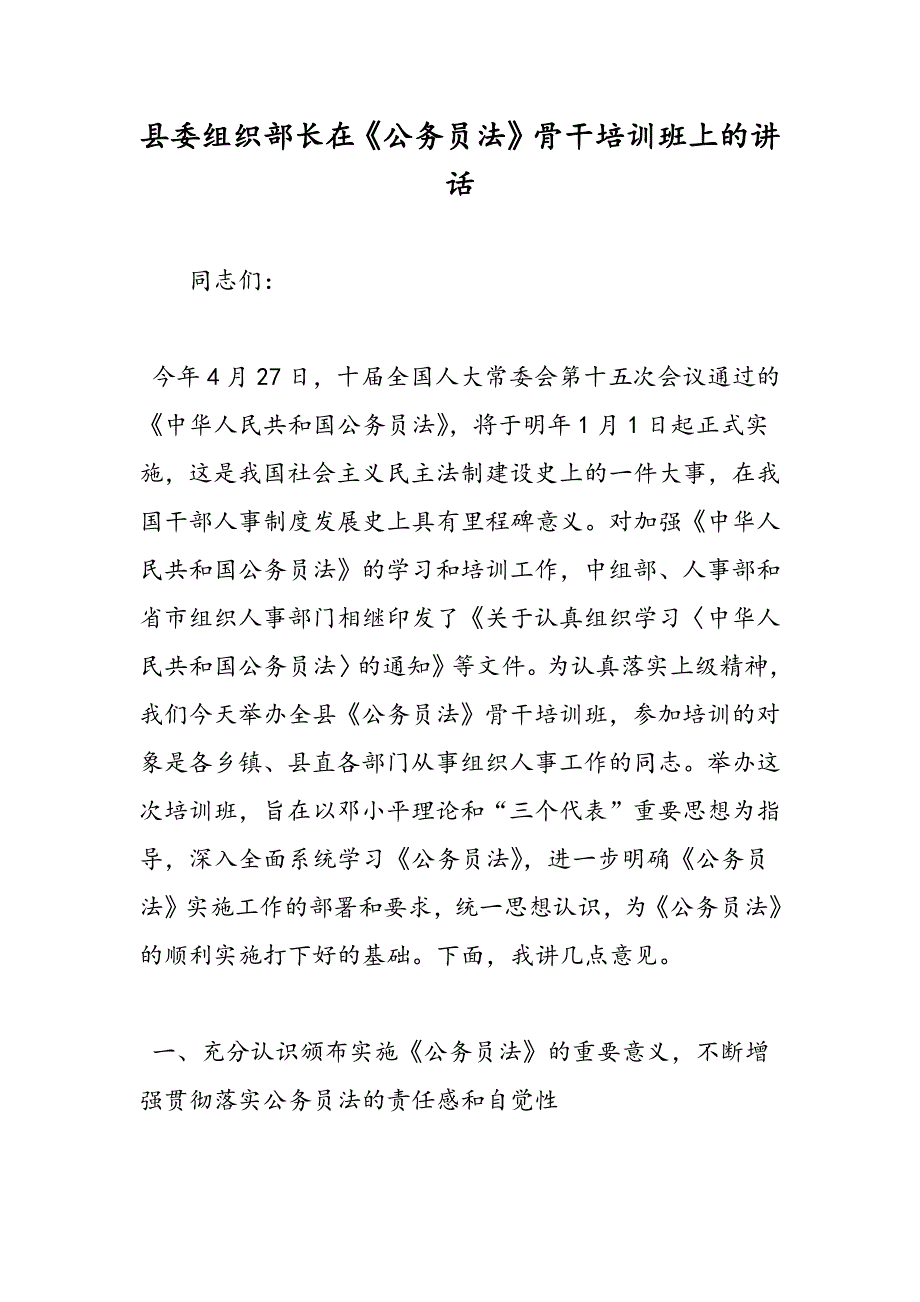 县委组织部长在《公务员法》骨干培训班上的讲
话
同志们：
今年4月27日，十届全国人大常委会第十五次会议通过的
《中华人民共和国公务员法》，将于明年1月1日起正式实
施，这是我国社会主义民主法制建设史上的一件大事，在我
国干部人事制度发展史上具有里程碑意义。对加强《中华人
民共和国公务员法》的学习和培训工作，中组部、人事部和
省市组织人事部门相继印发了《关于认真组织学习〈中华人
民共和国公务员法〉的通知》等文件。为认真落实上级精神，
我们今天举办全县《公务员法》骨干培训班，参加培训的对
象是各乡镇、县直各部门从事组织人事工作的同志。举办这
次培训班，旨在以邓小平理论和“三个代表”重要思想为指
导，深入全面系统学习《公务员法》，进一步明确《公务员
法》实施工作的部署和要求，统一思想认识，为《公务员法》
的顺利实施打下好的基础。下面，我讲几点意见。
一、充分认识颁布实施《公务员法》的重要意义，不断增
强贯彻落实公务员法的责任感和自觉性